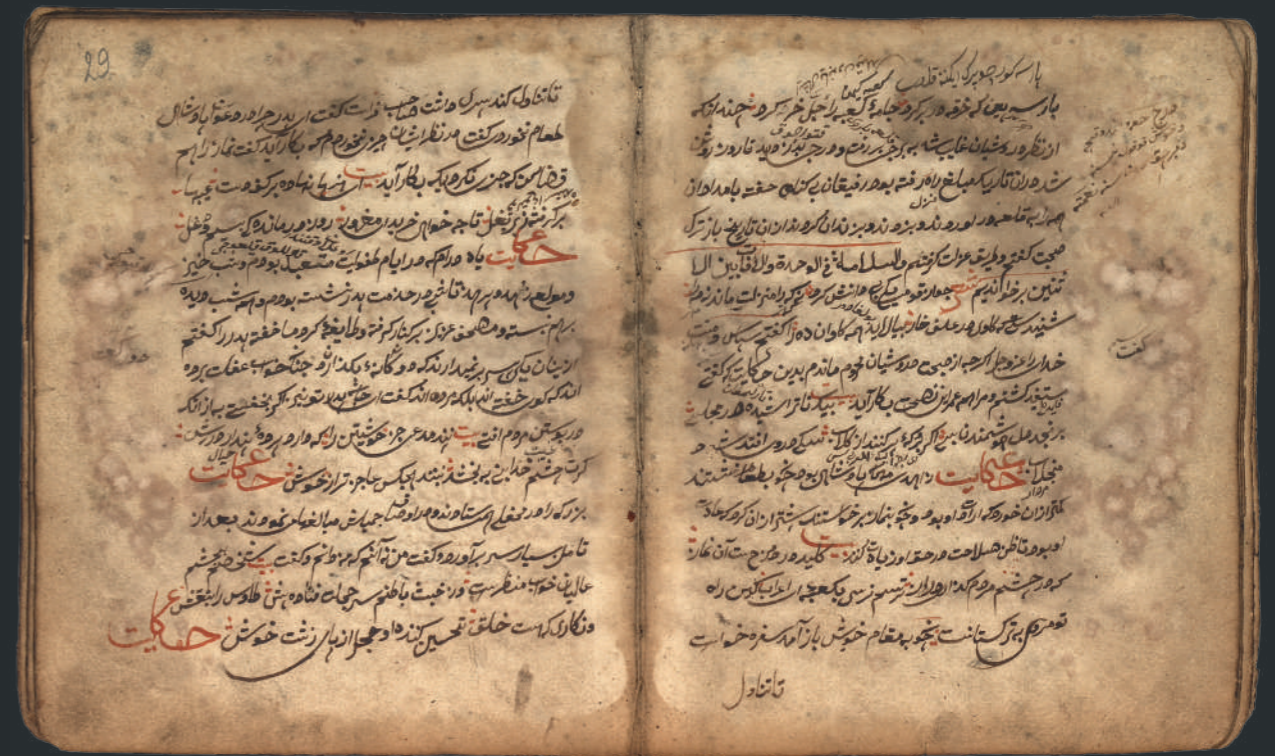 پارسا بین که خرقه در بر کرد جامهٔ کعبه را جل خر کرد چندانکه
از نظر درویشان غایب شد به برجی بر رفت و درجی بدزدید تا روز روشن
شد دران تاریک مبلغی راه رفته بود و رفیقان بی کناه خفته بامدادان
همه را به قلعه در اوردند و بزدند و بزندان کردند ازان تاریخ باز ترک
صحبت کفتیم و طریق عزلت کرفتیم والسلامة فی الوحدة والآفات بین الا
ثنین برخواندیم شعر چو از قومی یکی بی دانشی کرد نه که را منزلت ماند نه مه را
شنیدستی که کاوی در علف خار بیالاید همه کاوان ده را کفتم سپاس و منت
خدای را عز و جل که اکرچه از صحبت درویشان محروم ماندم بدین حکایت که کفتی
مستفید کشتم و مرا همه عمر این نصیحت بکار آید بیت بیک ناتراشیده در مجلسی
برنجد دل هوشمندان بسی اکر برکهٔ پر کنند از کلاب سکی در وی افتد شود
منجلاب حکایت زاهدی مهمان پادشاهی بود چون بطعام بنشستند
کمتر ازان خورد که ارادت او بود و چون بنماز برخواستند بیشتر ازان کرد که عادت
او بود تا ظن صلاحیت در حق او زیادت کنند بیت کلید در دوزخ است آن نماز
که در چشم مردم کذاری دراز ترسم نرسی بکعبه ای اعرابی کین راه
تو میروی بترکستانست چون بمقام خویش باز آمد سفره خواست
تا تناول
کفت
29
تا تناول کند پسری داشت صاحب فراست کفت ای پدر چرا در دعوت پادشاه
طعام نخوردی کفت در نظر ایشان چیزی نخوردم که بکار آید کفت نماز را هم
قضا کن که چیزی نکردی که بکار آید بیت ای هنرها نهاده بر کف دست عیبها
بر کرفته زیر بغل تا چه خواهی خریدن ای مغرور روز درماندکی بسیم دغل
حکایت یاد دارم که در ایام طفولیت متعبد بودم و شب خیز
و مولع زهد و پرهیز تا شبی در خدمت پدر نشسته بودم و همه شب دیده
برهم نبسته و مصحف عزیز بر کنار کرفته و طایفهٔ کرد ما خفته پدر را کفتم
از اینان یکی سر بر نمیدارند که دوکانهٔ بکذارد چنان خواب غفلت برده
اند که کوی خفته اند بلکه مرده اند کفت ای جان پدر تو نیز اکر بخفتی به از انکه
در پوستین مردم افتی بیت نبیند مدعی جز خویشتن را که دارد پردهٔ پندار در پیش
کرت چشم خدا بینی ببخشند نبینی هیچکس عاجزتر از خویش حکایت
بزرکی را در محفلی همی ستاودند و در اوصاف جمیلش مبالغه می نمودند بعد از
تامل بسیار سر برآورد و کفت من نه آنم که من دانم و کفت بیت شخصم بچشم
عالمیان خوب منظر است وز خبث باطنم سر خجلت فتاده پیش طاوس را بنقش
و نکاری که هست خلق تحسین کنند و او خجل از پای زشت خویش حکایت